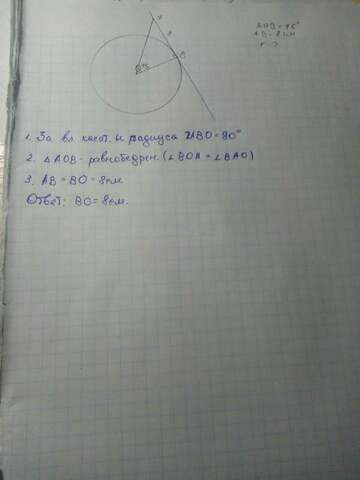 ∠AOB = 45°
AB = 8 см
r - ?
A
8
B
O
1. За вл касат. и радиуса ∠ABO = 90°
2. △AOB - равнобедрен. (∠BOA = ∠BAO)
3. AB = BO = 8 см
Ответ: BO = 8 см.